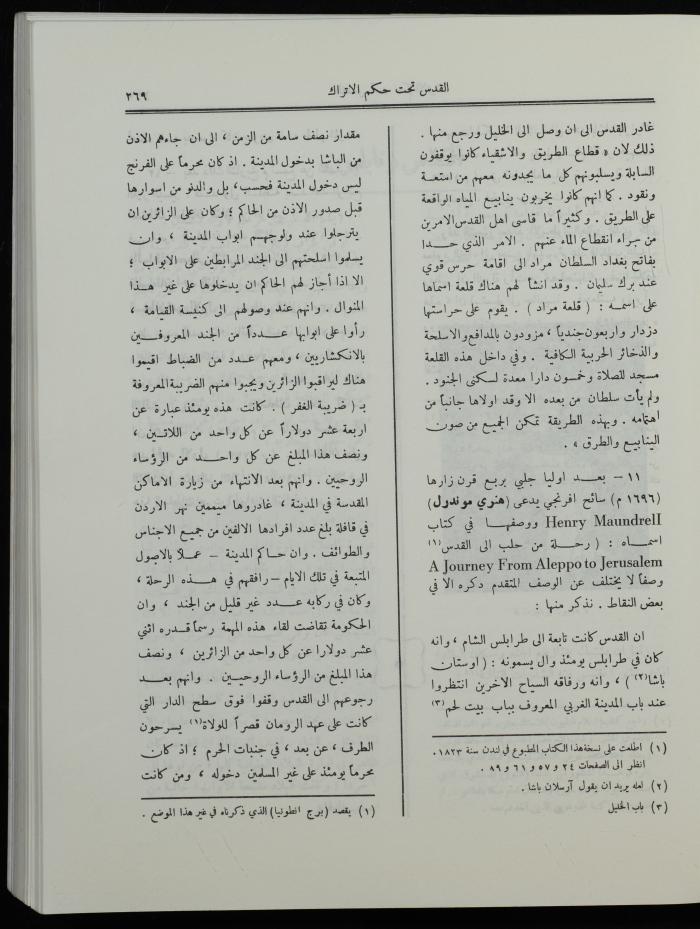 القدس تحت حكم الاتراك
٢٦٩
غادر القدس الى ان وصل الى الخليل ورجع منها .
ذلك لان « قطاع الطريق والاشقياء كانوا يوقفون
السابلة ويسلبونهم كل ما يجدونه معهم من امتعة
ونقود . كما انهم كانوا يخربون ينابيع المياه الواقعة
على الطريق . وكثيراً ما قاسى اهل القدس الامرين
من جراء انقطاع الماء عنهم . الامر الذي حدا
بفاتح بغداد السلطان مراد الى اقامة حرس قوي
عند برك سليمان . وقد انشأ لهم هناك قلعة اسماها
على اسمه : ( قلعة مراد ) . يقوم على حراستها
دزدار واربعون جندياً ، مزودون بالمدافع والاسلحة
والذخائر الحربية الكافية . وفي داخل هذه القلعة
مسجد للصلاة وخمسون دارا معدة لسكنى الجنود .
ولم يأت سلطان من بعده الا وقد اولاها جانباً من
اهتمامه . وبهذه الطريقة تمكن الجميع من صون
الينابيع والطرق » .
١١ – بعد اوليا جلبي بربع قرن زارها
(١٦٩٦ م) سائح افرنجي يدعى (هنري موندرل)
Henry Maundrell ووصفها في كتاب
اسماه : ( رحلة من حلب الى القدس(١)
A Journey From Aleppo to Jerusalem
وصفاً لا يختلف عن الوصف المتقدم ذكره الا في
بعض النقاط . نذكر منها :
ان القدس كانت تابعة الى طرابلس الشام ، وانه
كان في طرابلس يومئذ وال يسمونه : ( اوستان
باشا(٢) ) ، وانه ورفاقه السياح الآخرين انتظروا
عند باب المدينة الغربي المعروف بباب بيت لحم(٣)
(١) اطلعت على نسخة هذا الكتاب المطبوع في لندن سنة ١٨٢٣.
انظر الى الصفحات ٢٤ و ٥٧ و ٦١ و ٨٩ .
(٢) لعله يريد ان يقول آرسلان باشا .
(٣) باب الخليل
مقدار نصف سامة من الزمن ، الى ان جاءهم الاذن
من الباشا بدخول المدينة . اذ كان محرماً على الفرنج
ليس دخول المدينة فحسب، بل والدنو من اسوارها
قبل صدور الاذن من الحاكم ؛ وكان على الزائرين ان
يترجلوا عند ولوجهم ابواب المدينة ، وان
يسلموا اسلحتهم الى الجند المرابطين على الابواب ؛
الا اذا أجاز لهم الحاكم ان يدخلوها على غير هذا
المنوال . وانهم عند وصولهم الى كنيسة القيامة ،
رأوا على ابوابها عدداً من الجند المعروفين
بالانكشاريين ، ومعهم عدد من الضباط اقيموا
هناك ليراقبوا الزائرين ويجبوا منهم الضريبة المعروفة
بـ ( ضريبة الغفر ) . كانت هذه يومئذ عبارة عن
اربعة عشر دولاراً عن كل واحد من اللاتين ،
ونصف هذا المبلغ عن كل واحد من الرؤساء
الروحيين . وانهم بعد الانتهاء من زيارة الاماكن
المقدسة في المدينة ، غادروها ميممين نهر الاردن
في قافلة بلغ عدد افرادها الالفين من جميع الاجناس
والطوائف . وان حاكم المدينة – عملاً بالاصول
المتبعة في تلك الايام – رافقهم في هذه الرحلة ،
وكان في ركابه عدد غير قليل من الجند ، وان
الحكومة تقاضت لقاء هذه المهمة رسماً قدره اثني
عشر دولارا عن كل واحد من الزائرين ، ونصف
هذا المبلغ من الرؤساء الروحيين . وانهم بعد
رجوعهم الى القدس وقفوا فوق سطح الدار التي
كانت على عهد الرومان قصراً للولاة(١) يسرحون
الطرف ، عن بعد ، في جنبات الحرم ؛ اذ كان
محرماً يومئذ على غير المسلمين دخوله ، ومن كانت
(١) يقصد (برج انطونيا) الذي ذكرناه في غير هذا الموضع .